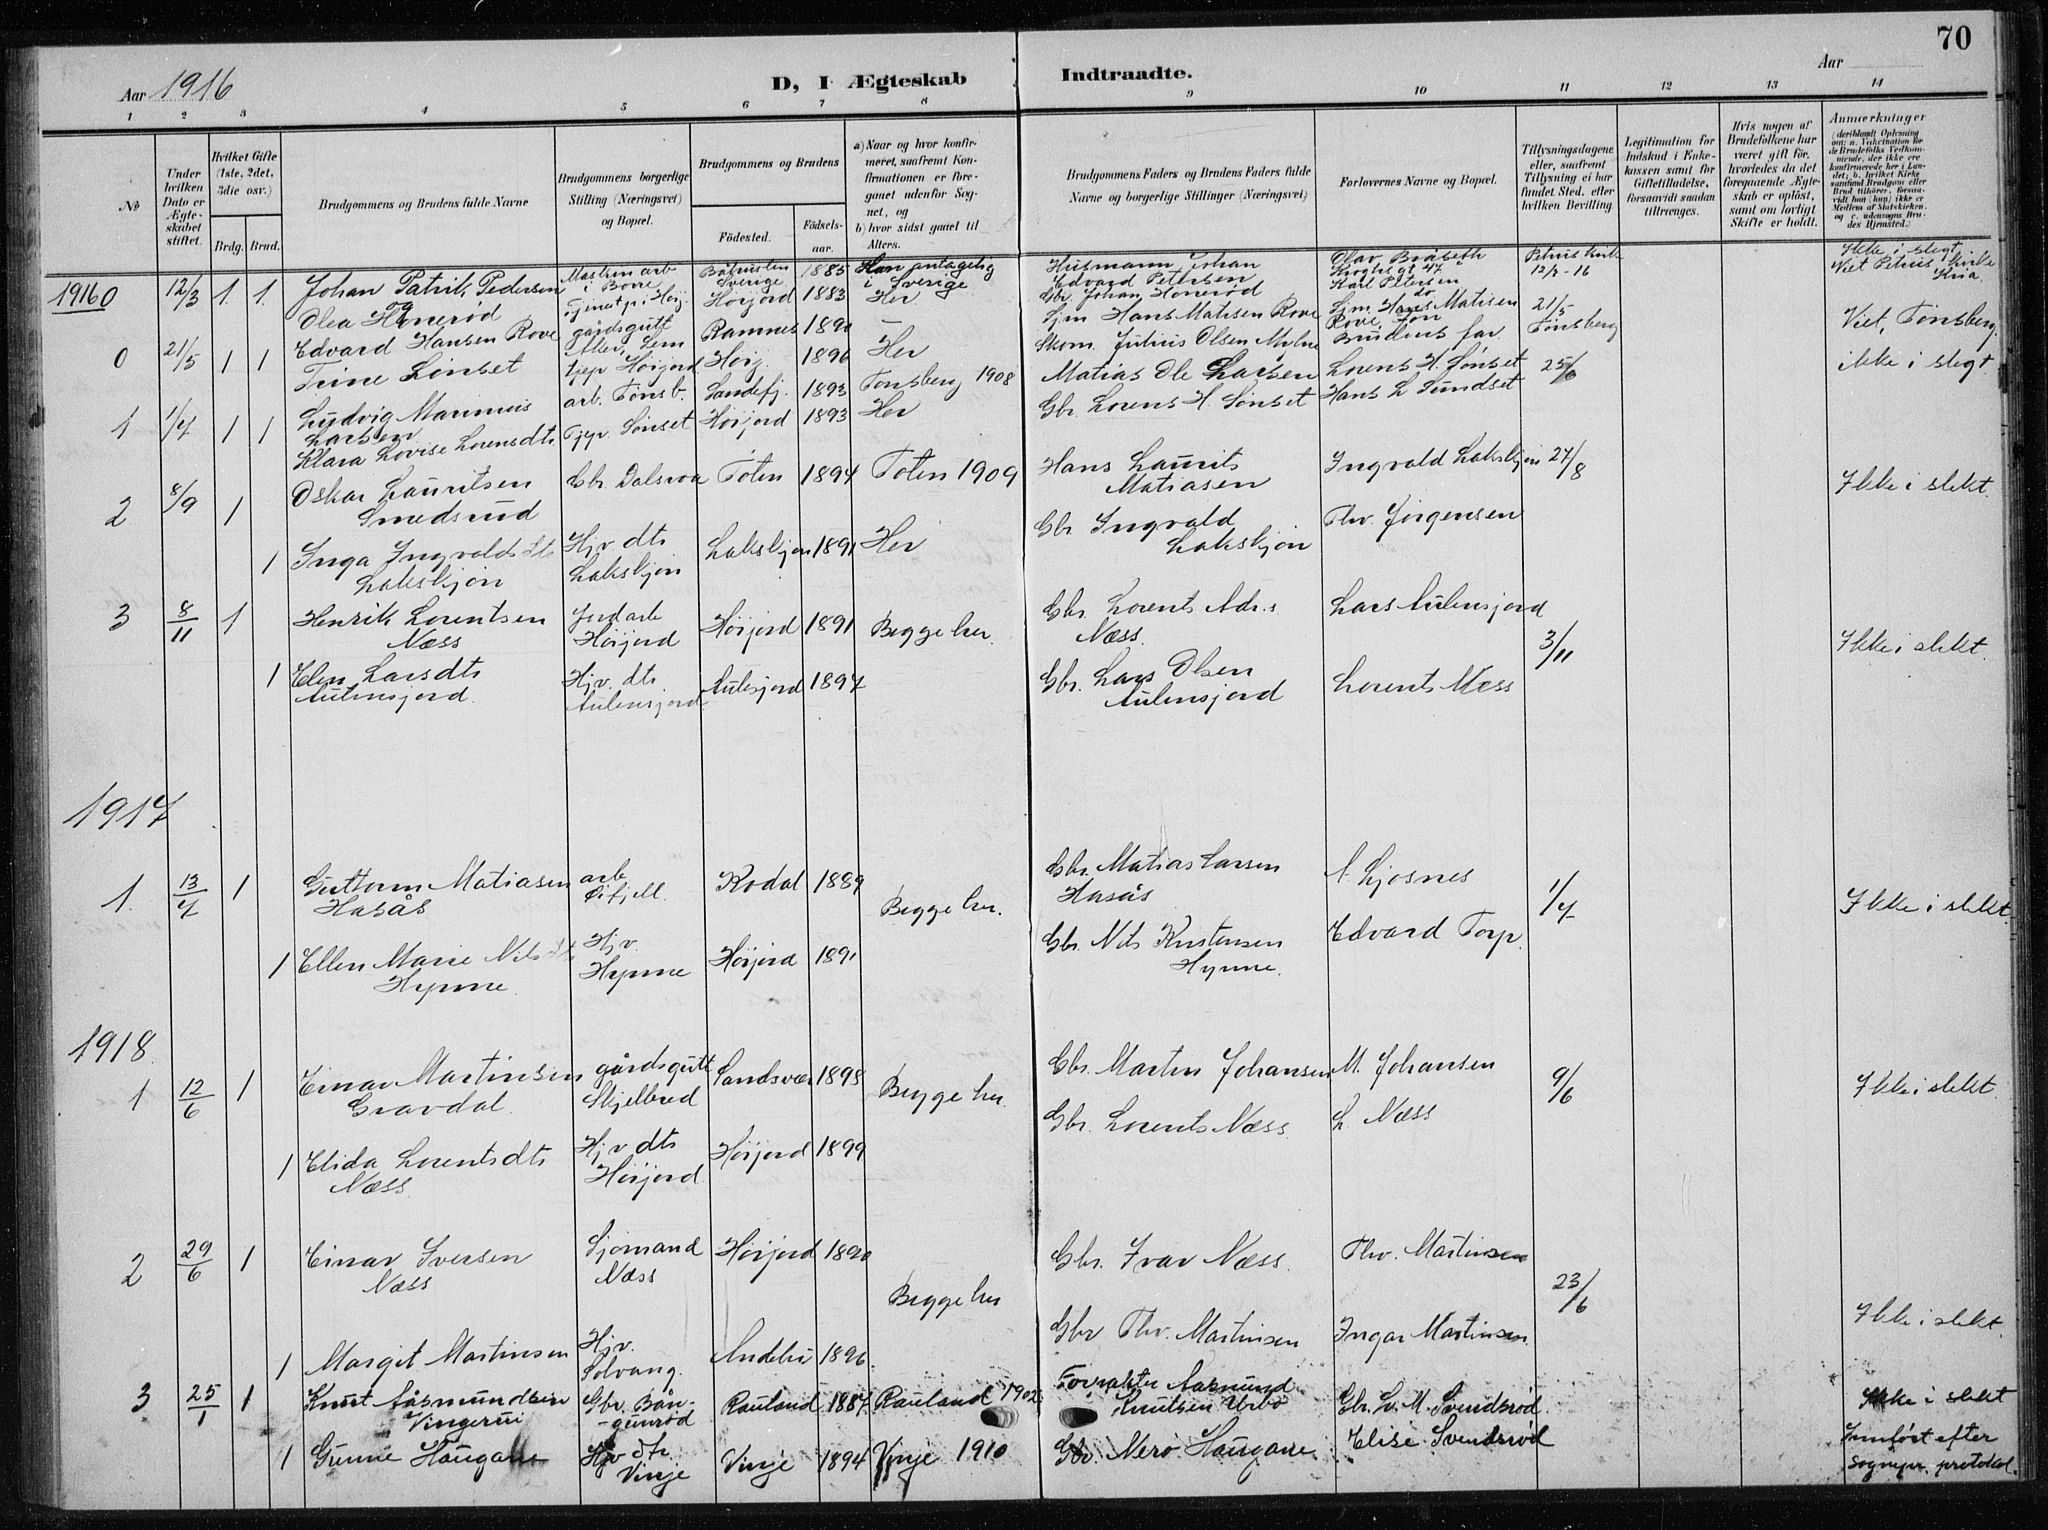 70
Aar 1916
D, I Ægteskab Indtraadte.
Aar
1 2 3 4 5 6 7 8 9 10 11 12 13 14
No
Under hvilken Dato er Ægteskabet stiftet.
Hvilket Gifte (1ste, 2det, 3die osv.)
Brdg. Brud.
Brudgommens og Brudens fulde Navne
Brudgommens borgerlige Stilling (Næringsvei) og Bopæl.
Brudgommens og Brudens
Fødested.
Fødselsaar.
a) Naar og hvor konfirmeret, saafremt Konfirmationen er foregaaet udenfor Sognet, og
b) hvor sidst gaaet til Alters.
Brudgommens Faders og Brudens Faders fulde Navne og borgerlige Stillinger (Næringsvei)
Forlovernes Navne og Bopæl.
Tillysningsdagene eller, saafremt Tillysning ei har fundet Sted, efter hvilken Bevilling.
Legitimation for Indskud i Enkekassen samt for Giftetilladelse, forsaavidt saadan tiltrænges.
Hvis nogen af Brudefolkene har været gift før, hvorledes da det foregaaende Ægteskab er opløst, samt om lovligt Skifte er holdt.
Anmærkninger
1916 0 12/3 1 1 Johan Patrik Pedersen Maskinarb i Borre Båhuslen Sverige 1885 Han antagelig i Sverige Husmann Johan Edvard Petersen Olav Bråseth Kroghs gt 47 Petrus kirke 12/3-16 Ikke i slegt Viet Petrus kirke Kria
og
Olea Hønerød Tjenestpi. Høij. Høijord 1883 Her Gbr. Johan Hønerød Karl Petersen do
0 21/5 1 1 Edvard Hansen Rove gårdsgutt Aller, Sem Ramnes 1890 — Sjm Hans Matisen Rove Sjm. Hans Matisen Rove, Tøn 21/5 Tønsberg Viet, Tønsberg
Trine Sønset tjep Høijord Høij. 1896 Her Skom. Julius Olsen Brudens far ikke i slegt
1 1/7 1 1 Ludvig Marinius Larsen arb. Tønsb. Sandefj. 1893 Tønsberg 1908 Matias Ole Larsen Lorens H. Sønset 25/6
Klara Lovise Lorensdtr Tjep. Sønset Høijord 1893 Her Gbr. Lorens H. Sønset Hans L Sundset
2 8/9 1 Oskar Lauritsen Smedsrud Gbr. Dalsroa Toten 1894 Toten 1909 Hans Laurits Matiasen Ingvald Lakskjøn 27/8 Ikke i slekt.
1 Inga Ingvaldsdtr Lakskjøn Hjv. dtr Lakskjøn Lakskjøn 1891 Her Gbr Ingvald Lakskjøn Thv. Jørgensen
3 8/11 1 Henrik Lorentsen Næss Jordarb Høijord Høijord 1891 Begge her. Gbr. Lorents Adr.s Næss. Lars Aulensjord 3/11 Ikke i slekt.
1 Elen Larsdtr Aulensjord Hjv. dtr Aulensjord Aulesjord 1897 Gbr. Lars Olsen Aulensjord Lorents Næss
1917
1. 13/7 1 Guttorm Matiasen Hasås arb Øifjell. Kodal 1889 Begge her. Gbr. Matias Larsen Hasås A. Ljosnes 1/7 Ikke i slekt.
1 Ellen Marie Nilsdtr Hynne Hjv. Hynne Høijord 1891 Gbr. Nils Kristensen Hynne. Edvard Torp.
1918
1 12/6 1 Einar Martinsen Gravdal. gårdsgutt Skjelbred Sandsvær 1898 Begge her. Gbr. Martin Johansen M. Johansen 9/6 Ikke i slekt.
1 Elida Lorentsdtr Næss. Hjv. dtr Høijord Høijord 1899 Gbr. Lorents Næss. L. Næss
2 29/6 1 Einar Iversen Næss Sjømand Næss Høijord 1890 Begge her Gbr. Ivar Næss. Thv. Martinsen 23/6 Ikke i slekt.
1 Margit Martinsen Hjv. Solvang. Andebu 1896 Gbr Thv. Martinsen Ingar Martinsen
3 25/1 1 Knut Aasmundsen Vingerui Gbr. Bångunrød Rauland 1887 Rauland 1902 Forpakter Aasmund Knutsen Urbø Gbr. L. M. Svendsrød. Ikke i slekt
1 Gunne Haugann Hjv dtr Vinje Vinje 1894 Vinje 1910 Gbr. Nerø Haugann Elise Svendsrød Innført efter sognepr. protokol.